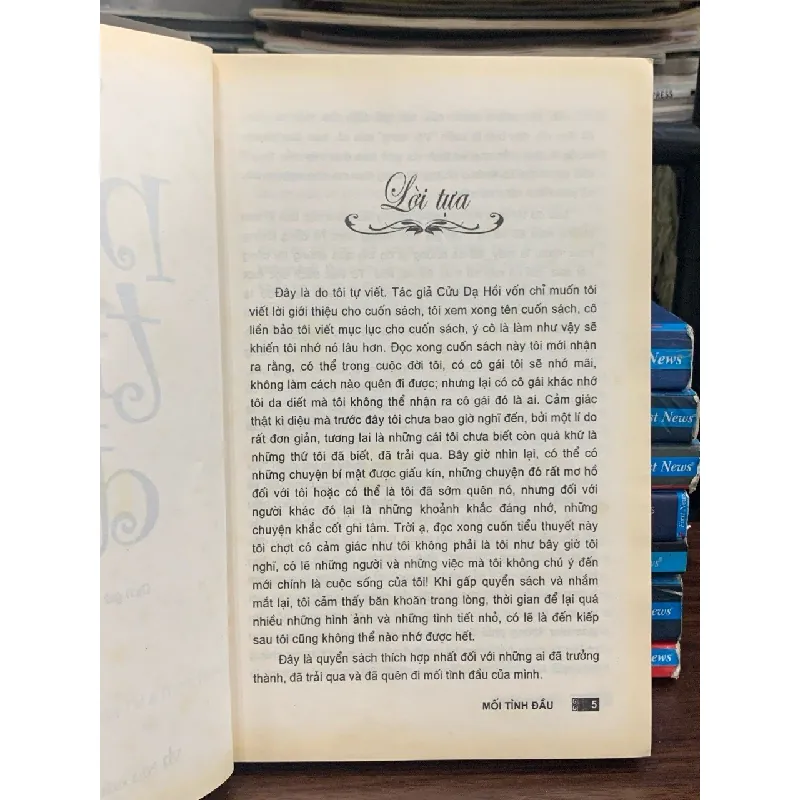 RESS
Lời tựa
Đây là do tôi tự viết. Tác giả Cửu Dạ Hồi vốn chỉ muốn tôi
viết lời giới thiệu cho cuốn sách, tôi xem xong tên cuốn sách, cô
liền bảo tôi viết mục lục cho cuốn sách, ý cô là làm như vậy sẽ
khiến tôi nhớ nó lâu hơn. Đọc xong cuốn sách này tôi mới nhận
ra rằng, có thể trong cuộc đời tôi, có cô gái tôi sẽ nhớ mãi,
không làm cách nào quên đi được; nhưng lại có cô gái khác nhớ
tôi da diết mà tôi không thể nhận ra cô gái đó là ai. Cảm giác
thật kì diệu mà trước đây tôi chưa bao giờ nghĩ đến, bởi một lí do
rất đơn giản, tương lai là những cái tôi chưa biết còn quá khứ là
những thứ tôi đã biết, đã trải qua. Bây giờ nhìn lại, có thể có
những chuyện bí mật được giấu kín, những chuyện đó rất mơ hồ
đối với tôi hoặc có thể là tôi đã sớm quên nó, nhưng đối với
người khác đó lại là những khoảnh khắc đáng nhớ, những
chuyện khắc cốt ghi tâm. Trời ạ, đọc xong cuốn tiểu thuyết này
tôi chợt có cảm giác như tôi không phải là tôi như bây giờ tôi
nghĩ, có lẽ những người và những việc mà tôi không chú ý đến
mới chính là cuộc sống của tôi! Khi gấp quyển sách và nhắm
mắt lại, tôi cảm thấy băn khoăn trong lòng, thời gian để lại quá
nhiều những hình ảnh và những tình tiết nhỏ, có lẽ là đến kiếp
sau tôi cũng không thể nào nhớ được hết.
Đây là quyển sách thích hợp nhất đối với những ai đã trưởng
thành, đã trải qua và đã quên đi mối tình đầu của mình.
MỐI TÌNH ĐẦU 5
News
st News
st News
First News
News
ews